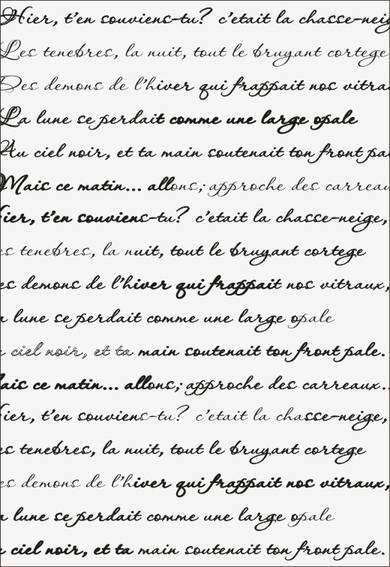 Hier, t'en souviens-tu? c'etait la chasse-neig
Les tenebres, la nuit, tout le bruyant cortege
Des demons de l'hiver qui frappait nos vitra
La lune se perdait comme une large opale
Au ciel noir, et ta main soutenait ton front pa
Mais ce matin... allons; approche des carreau
ier, t'en souviens-tu? c'etait la chasse-neige,
es tenebres, la nuit, tout le bruyant cortege
es demons de l'hiver qui frappait nos vitraux,
a lune se perdait comme une large opale
ciel noir, et ta main soutenait ton front pale.
ais ce matin... allons; approche des carreaux..
ier, t'en souviens-tu? c'etait la chasse-neige,
es tenebres, la nuit, tout le bruyant cortege
es demons de l'hiver qui frappait nos vitraux,
a lune se perdait comme une large opale
ciel noir, et ta main soutenait ton front pale.